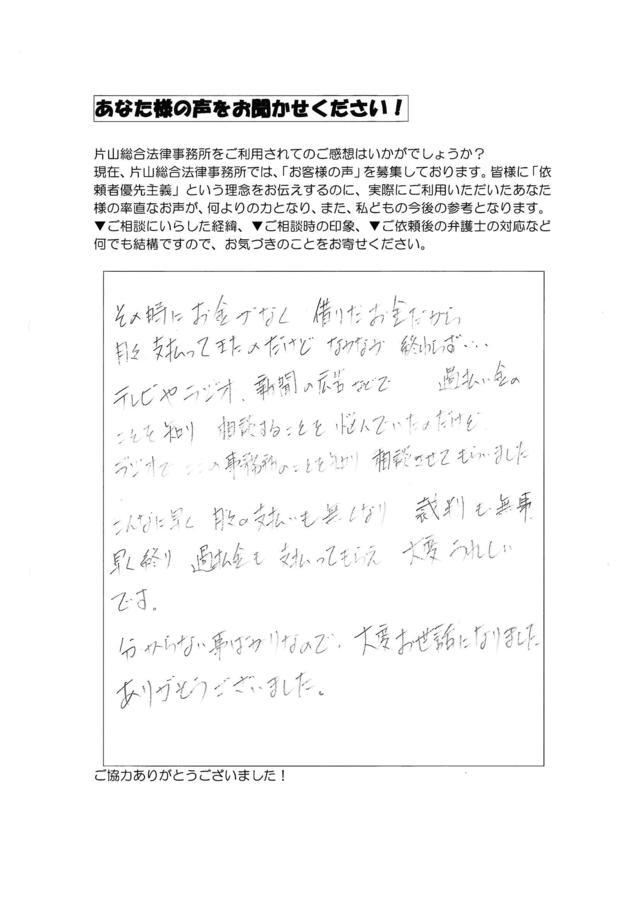 あなた様の声をお聞かせください！
片山総合法律事務所をご利用されてのご感想はいかがでしょうか？
現在、片山総合法律事務所では、「お客様の声」を募集しております。皆様に「依
頼者優先主義」という理念をお伝えするのに、実際にご利用いただいたあなた
様の率直なお声が、何よりの力となり、また、私どもの今後の参考となります。
▼ご相談にいらした経緯、▼ご相談時の印象、▼ご依頼後の弁護士の対応など
何でも結構ですので、お気づきのことをお寄せください。
その時にお金がなく 借りたお金だから
月々 支払ってきたのだけど なかなか 終われば・・・
テレビやラジオ、新聞の広告などで 過払い金の
ことを知り 相談することを 悩んでいたのだけど
ラジオで ここの事務所のことを知り 相談させてもらいました
こんなに早く 月々の支払いも無くなり 裁判も無事
早く終り 過払金も 支払ってもらえ 大変うれしい
です。
分からない事ばかりなので、大変お世話になりました
ありがとうございました。
ご協力ありがとうございました！